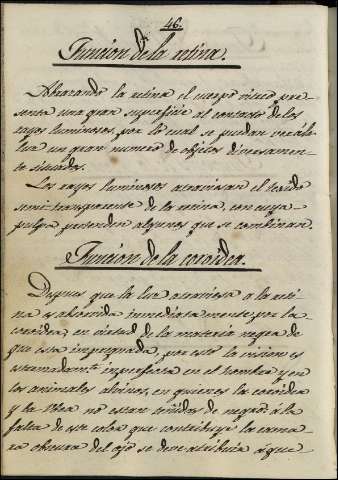 46.
Funcion de la retina.
Abrazando la retina el cuerpo vitreo pre-
senta una gran superficie al contacto de los
rayos luminosos, por lo cual se puedan
tar un gran numero de objetos diversamen-
te situados.
Los rayos luminosos atraviesan el tecido
semi-transparente de la retina, con cuya
pulpa penden algunos que se combinan.
Funcion de la coroidea.
Despues que la luz atraviesa a la reti-
na es absorvida inmediatamente por la
coroidea, en virtud de la materia negra de
que esta impregnada, por esto la vision es
estremadamte. imperfecta en el hombre y en
los animales alvinos, en quienes la coroidea
y la Uvea no estan teñidas de negro: á la
falta de este color que contribuye la cama-
ra obscura del ojo se deve atribuir á que